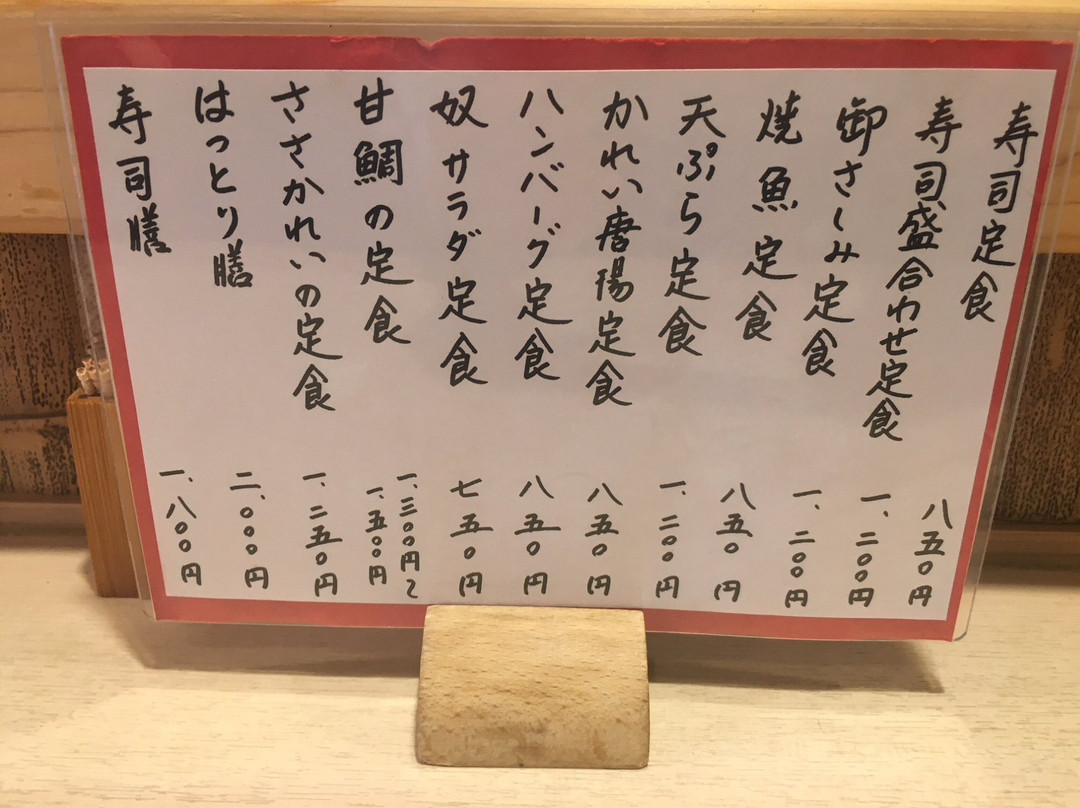 寿司定食 八五〇円
寿司盛合わせ定食 一、二〇〇円
御さしみ定食 一、二〇〇円
焼魚定食 八五〇円
天ぷら定食 一、二〇〇円
かれい唐揚定食 八五〇円
ハンバーグ定食 八五〇円
奴サラダ定食 七五〇円
甘鯛の定食 一、三〇〇円〜一、五〇〇円
ささかれいの定食 一、二五〇円
はっとり膳 二、〇〇〇円
寿司膳 一、八〇〇円